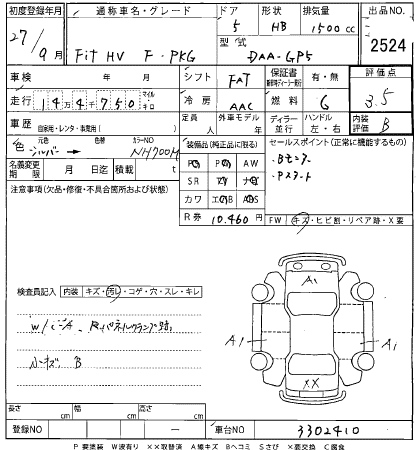 初度登録年月 通称車名・グレード ドア 形状 排気量 出品NO.
27/9月 FiT HV F・PKG 5 HB 1500cc 2524
型式 DAA-GP5
車検 年 月 シフト FAT 保証書 有・無 評価点
走行 14万4千750 マイル キロ 冷房 AAC 燃料 G 3.5
車歴 自家用・レンタ・事業用( ) 定員 人 外車モデル 年 ディーラー 並行 ハンドル 左・右 内装評価 B
色 元色 シルバー 色替 カラーNO NH700M 装備品(純正品に限る) セールスポイント(正常に機能するもの)
PS PW AW ・Bモニター
名義変更期限 月 日迄 積載 t SR ナビ TV ・Pスタート
注意事項(欠品・修復・不具合箇所および状態) カワ エアB ABS
R券 10,460円 FW キズ・ヒビ割・リペア跡・X要
検査員記入 内装 キズ・汚レ・コゲ・穴・スレ・キレ
A1
A1 A1
小キズ、B
XX
長さ cm 幅 cm 高さ cm
登録NO ー 車台NO 3302410
P要塗装 W波有り XX取替済 A線キズ Bヘコミ Sさび X要交換 C腐食